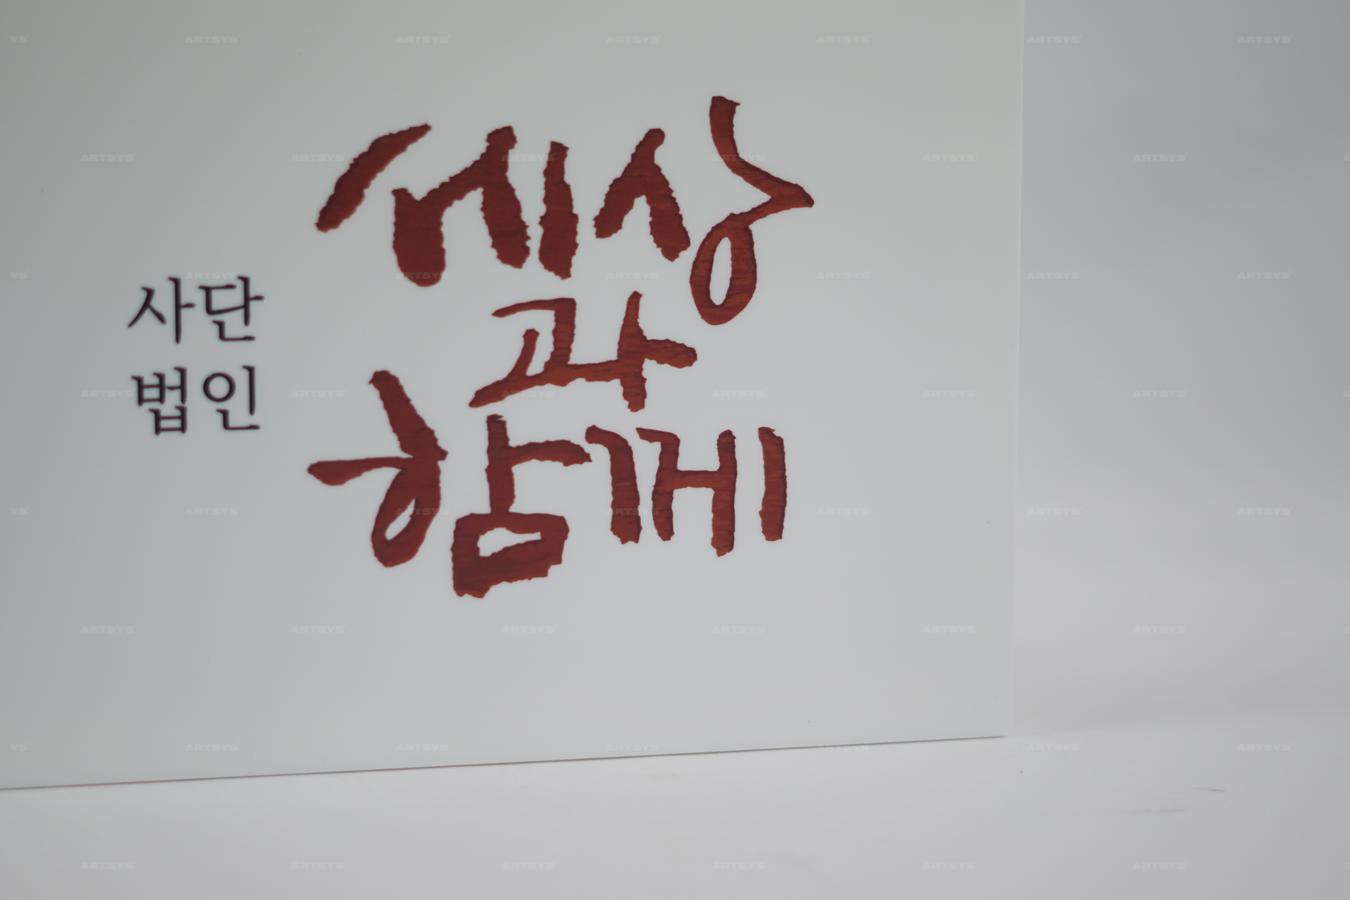 사단
법인
세상
과
함께
ARTSYS